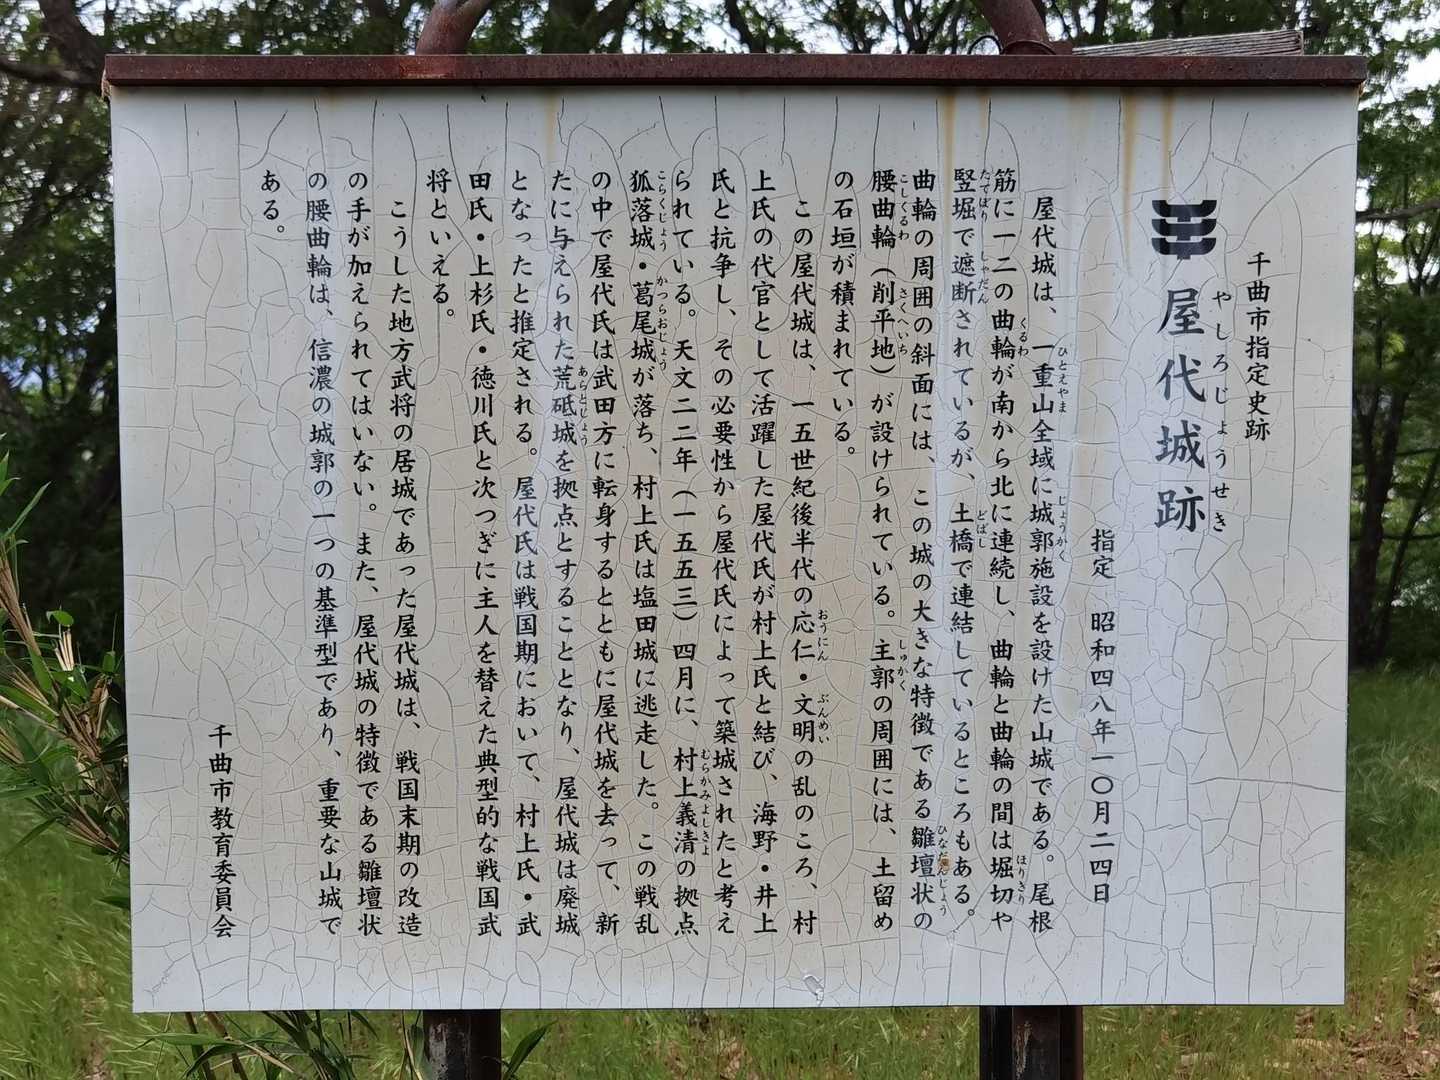 千曲市指定史跡
屋代城跡
やしろじょうせき
指定　昭和四八年一〇月二四日
屋代城は、一重山全域に城郭施設を設けた山城である。尾根
ひとえやま　じょうかく
筋に一二の曲輪が南から北に連続し、曲輪と曲輪の間は堀切や
くるわ　ほりきり
竪堀で遮断されているが、土橋で連結しているところもある。
たてぼり　しゃだん　どばし
曲輪の周囲の斜面には、この城の大きな特徴である雛壇状の
ひなだんじょう
腰曲輪（削平地）が設けられている。主郭の周囲には、土留め
こしくるわ　さくへいち　しゅかく
の石垣が積まれている。
この屋代城は、一五世紀後半代の応仁・文明の乱のころ、村
おうにん　ぶんめい
上氏の代官として活躍した屋代氏が村上氏と結び、海野・井上
氏と抗争し、その必要性から屋代氏によって築城されたと考え
られている。天文二二年（一五五三）四月に、村上義清の拠点
むらかみよしきよ
狐落城・葛尾城が落ち、村上氏は塩田城に逃走した。この戦乱
こらくじょう　かつらおじょう
の中で屋代氏は武田方に転身するとともに屋代城を去って、新
たに与えられた荒砥城を拠点とすることとなり、屋代城は廃城
あらとじょう
となったと推定される。屋代氏は戦国期において、村上氏・武
田氏・上杉氏・徳川氏と次つぎに主人を替えた典型的な戦国武
将といえる。
こうした地方武将の居城であった屋代城は、戦国末期の改造
の手が加えられてはいない。また、屋代城の特徴である雛壇状
の腰曲輪は、信濃の城郭の一つの基準型であり、重要な山城で
ある。
千曲市教育委員会